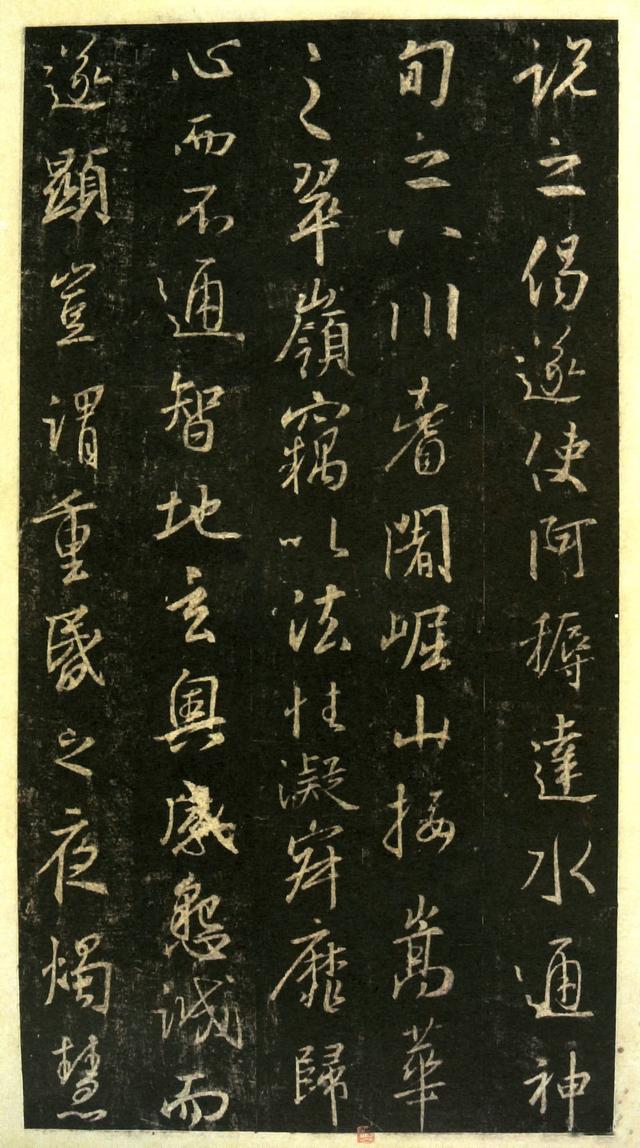 説之偈遂使阿耨達水通神
旬之八川耆闍崛山接嵩華
之翠嶺竊以法性凝寂靡歸
心而不通智地玄奧感懇誠而
遂顯豈謂重昏之夜燭慧